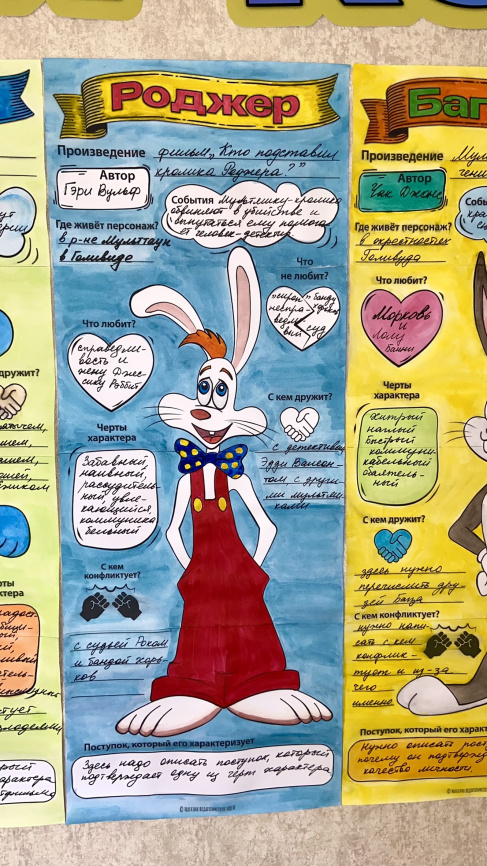 Роджер
Произведение фильм „Кто подставил
кролика Роджера?"
Автор
Гэри Вульф
События Мультяшку-кролика
обвиняют в убийстве и
ему помога
человек-детектив
Где живёт персонаж?
в р-не Мультаун
в Голивуде
Что
не любит?
банду
неспра-
ведли-
вый суд
Что любит?
справедли-
вость и
жену Джес-
сику Рэббит
С кем дружит?
с детективом
Эдди Валеон-
том, с други-
ми мультяш-
ками
Черты
характера
Забавный,
наивный,
рассудитель-
ный, увле-
кающийся,
коммуника
бельный
С кем
конфликтует?
с судьёй Роком
и бандой хорь-
ков
Поступок, который его характеризует
Здесь надо описать поступок, который
подтверждает одну из черт характера
Баг
Произведение Муль
Автор
Чак Джонс
Где живёт персонаж?
в окрестностях
Голивуда
Собы
Что любит?
Морковь
и
Лолу
Банни
Черты
характера
Хитрый
наглый
быстрый
коммуни-
кабельный
обаятель-
ный
С кем дружит?
здесь нужно
перечислить дру-
зей Багза
С кем конфликтует?
нужно напи-
сать с кем
конфлик-
тует и из-за
чего
именно
Поступок, который его характ
Нужно описать пост
почему он подтвержд
качество личности.
дружит?
ерты
ктера